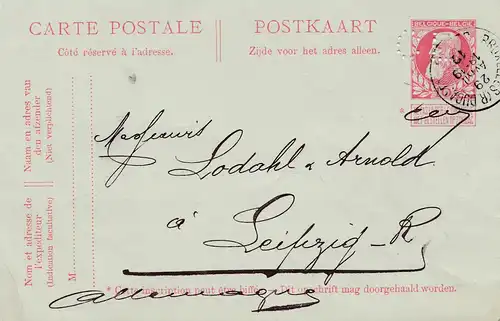 CARTE POSTALE POSTKAART
Côté réservé à l'adresse. Zijde voor het adres alleen.
BELGIQUE·BELGIË
Naam en adres van
den afzender
(Niet verplichtend)
Nom et adresse de
l'expéditeur
(Indication facultative)
M.
Messieurs
Lodahl & Arnold
à
Leipzig-R
* Cette inscription peut être biffée. Dit opschrift mag doorgehaald worden.
Allemagne